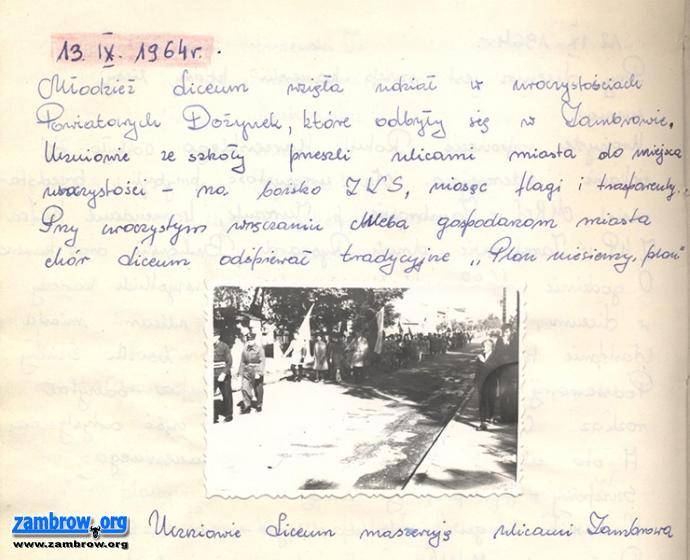 13. IX. 1964r.
Młodzież Liceum wzięła udział w uroczystościach
Powiatowych Dożynek, które odbyły się w Zambrowie.
Uczniowie ze szkoły przeszli ulicami miasta do miejsca
uroczystości – na boisko ZKS, niosąc flagi i trasparenty.
Przy uroczystym wręczaniu chleba gospodarzom miasta
chór Liceum odśpiewał tradycyjne „Plon niesiemy, plon"
zambrow.org
www.zambrow.org
Uczniowie Liceum maszerują ulicami Zambrowa